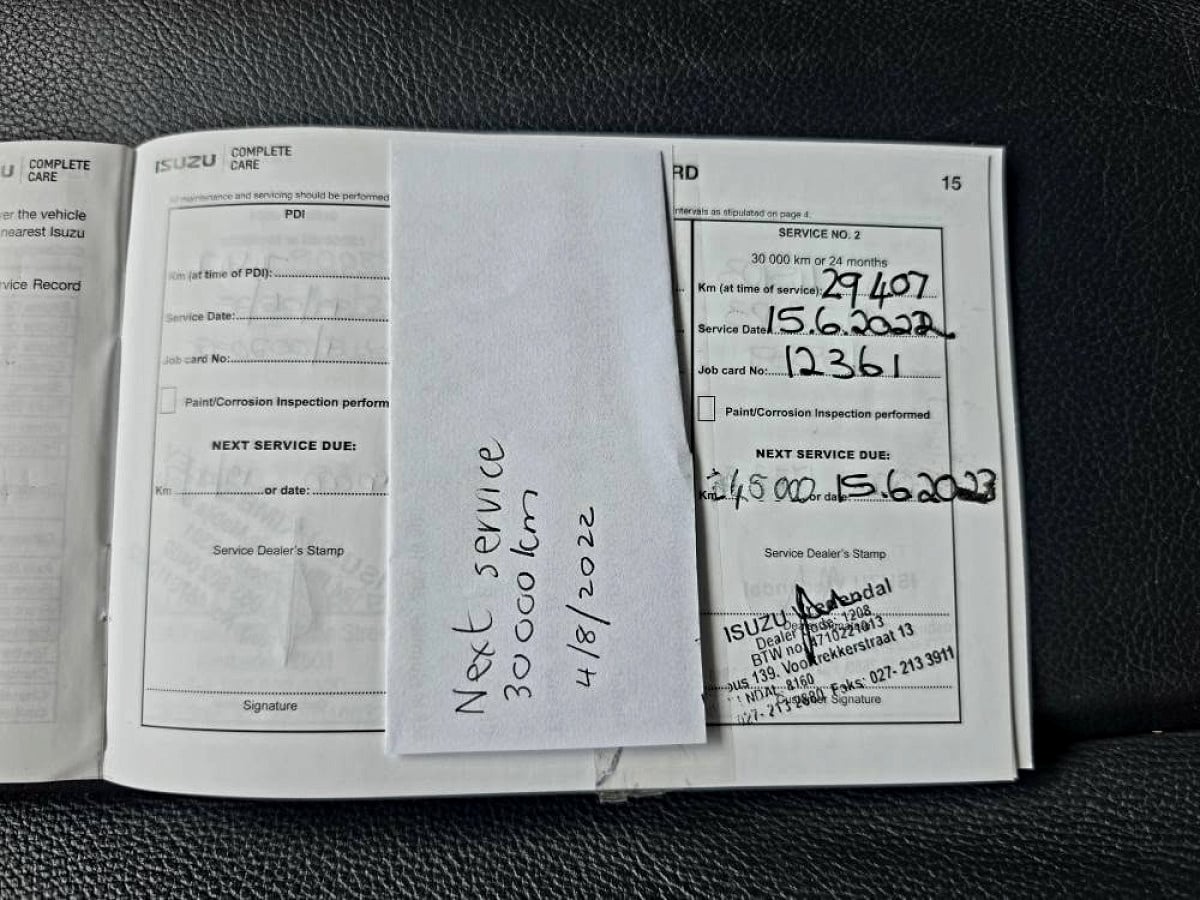 U COMPLETE CARE
er the vehicle
nearest Isuzu
vice Record
ISUZU COMPLETE CARE
maintenance and servicing should be performed
PDI
Km (at time of PDI):
Service Date:
Job card No:
Paint/Corrosion Inspection perform
NEXT SERVICE DUE:
Km or date:
Service Dealer's Stamp
Signature
Next service
30 000 km
4/8/2022
RD
15
ntervals as stipulated on page 4.
SERVICE NO. 2
30 000 km or 24 months
Km (at time of service): 29 407
Service Date 15.6.2022
Job card No: 12361
Paint/Corrosion Inspection performed
NEXT SERVICE DUE:
Km 45 000 or date 15.6.2023
Service Dealer's Stamp
ISUZU Vredendal
Dealer 1208
BTW no 4710221013
bus 139. Voortrekkerstraat 13
NDAL 8160
027- 213 2880 Faks: 027- 213 3911
Signature